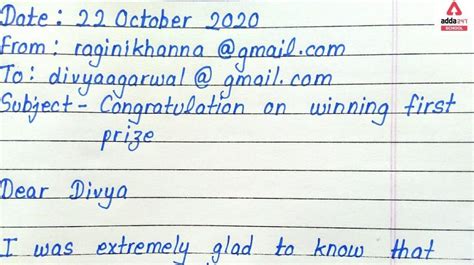 Date : 22 October 2020
From : raginikhanna @gmail.com
To : divyaagarwal @ gmail.com
Subject - Congratulation on winning first
prize
Dear Divya
I was extremely glad to know that
adda247
SCHOOL